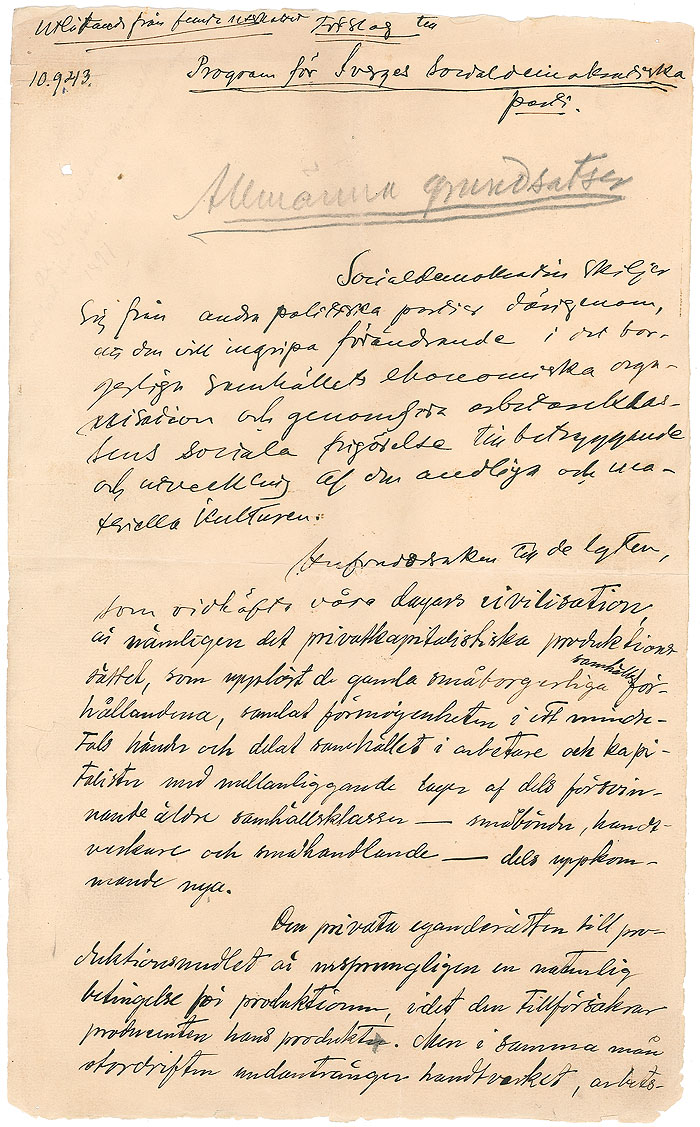 Utlåtande från femte utskottet Förslag till
10.9.43.
Program för Sveriges Socialdemokratiska
parti.
Allmänna grundsatser
Socialdemokratin skiljer
sig från andra politiska partier därigenom,
att den vill ingripa förändrande i det bor-
gerliga samhällets ekonomiska orga-
nisation och genomföra arbetareklas-
sens sociala frigörelse till betryggande
och utveckling af den andliga och ma-
teriella kulturen.
Hufvudorsaken till de lyten,
som vidhäfta våra dagars civilisation,
är nämligen det privatkapitalistiska produktions
sättet, som upplöst de gamla småborgerliga samhällsför-
hållandena, samlat förmögenheten i ett mindre-
tals händer och delat samhället i arbetare och kapi-
talister med mellanliggande lager af dels försvin-
nande äldre samhällsklasser — småbönder, handt-
verkare och småhandlande — dels uppkom-
mande nya.
Den privata eganderätten till pro-
duktionsmedlet är ursprungligen en naturlig
betingelse för produktionen, idet den tillförsäkrar
producenten hans produkter. Men i samma mån
stordriften undantränger handtverket, arbets-